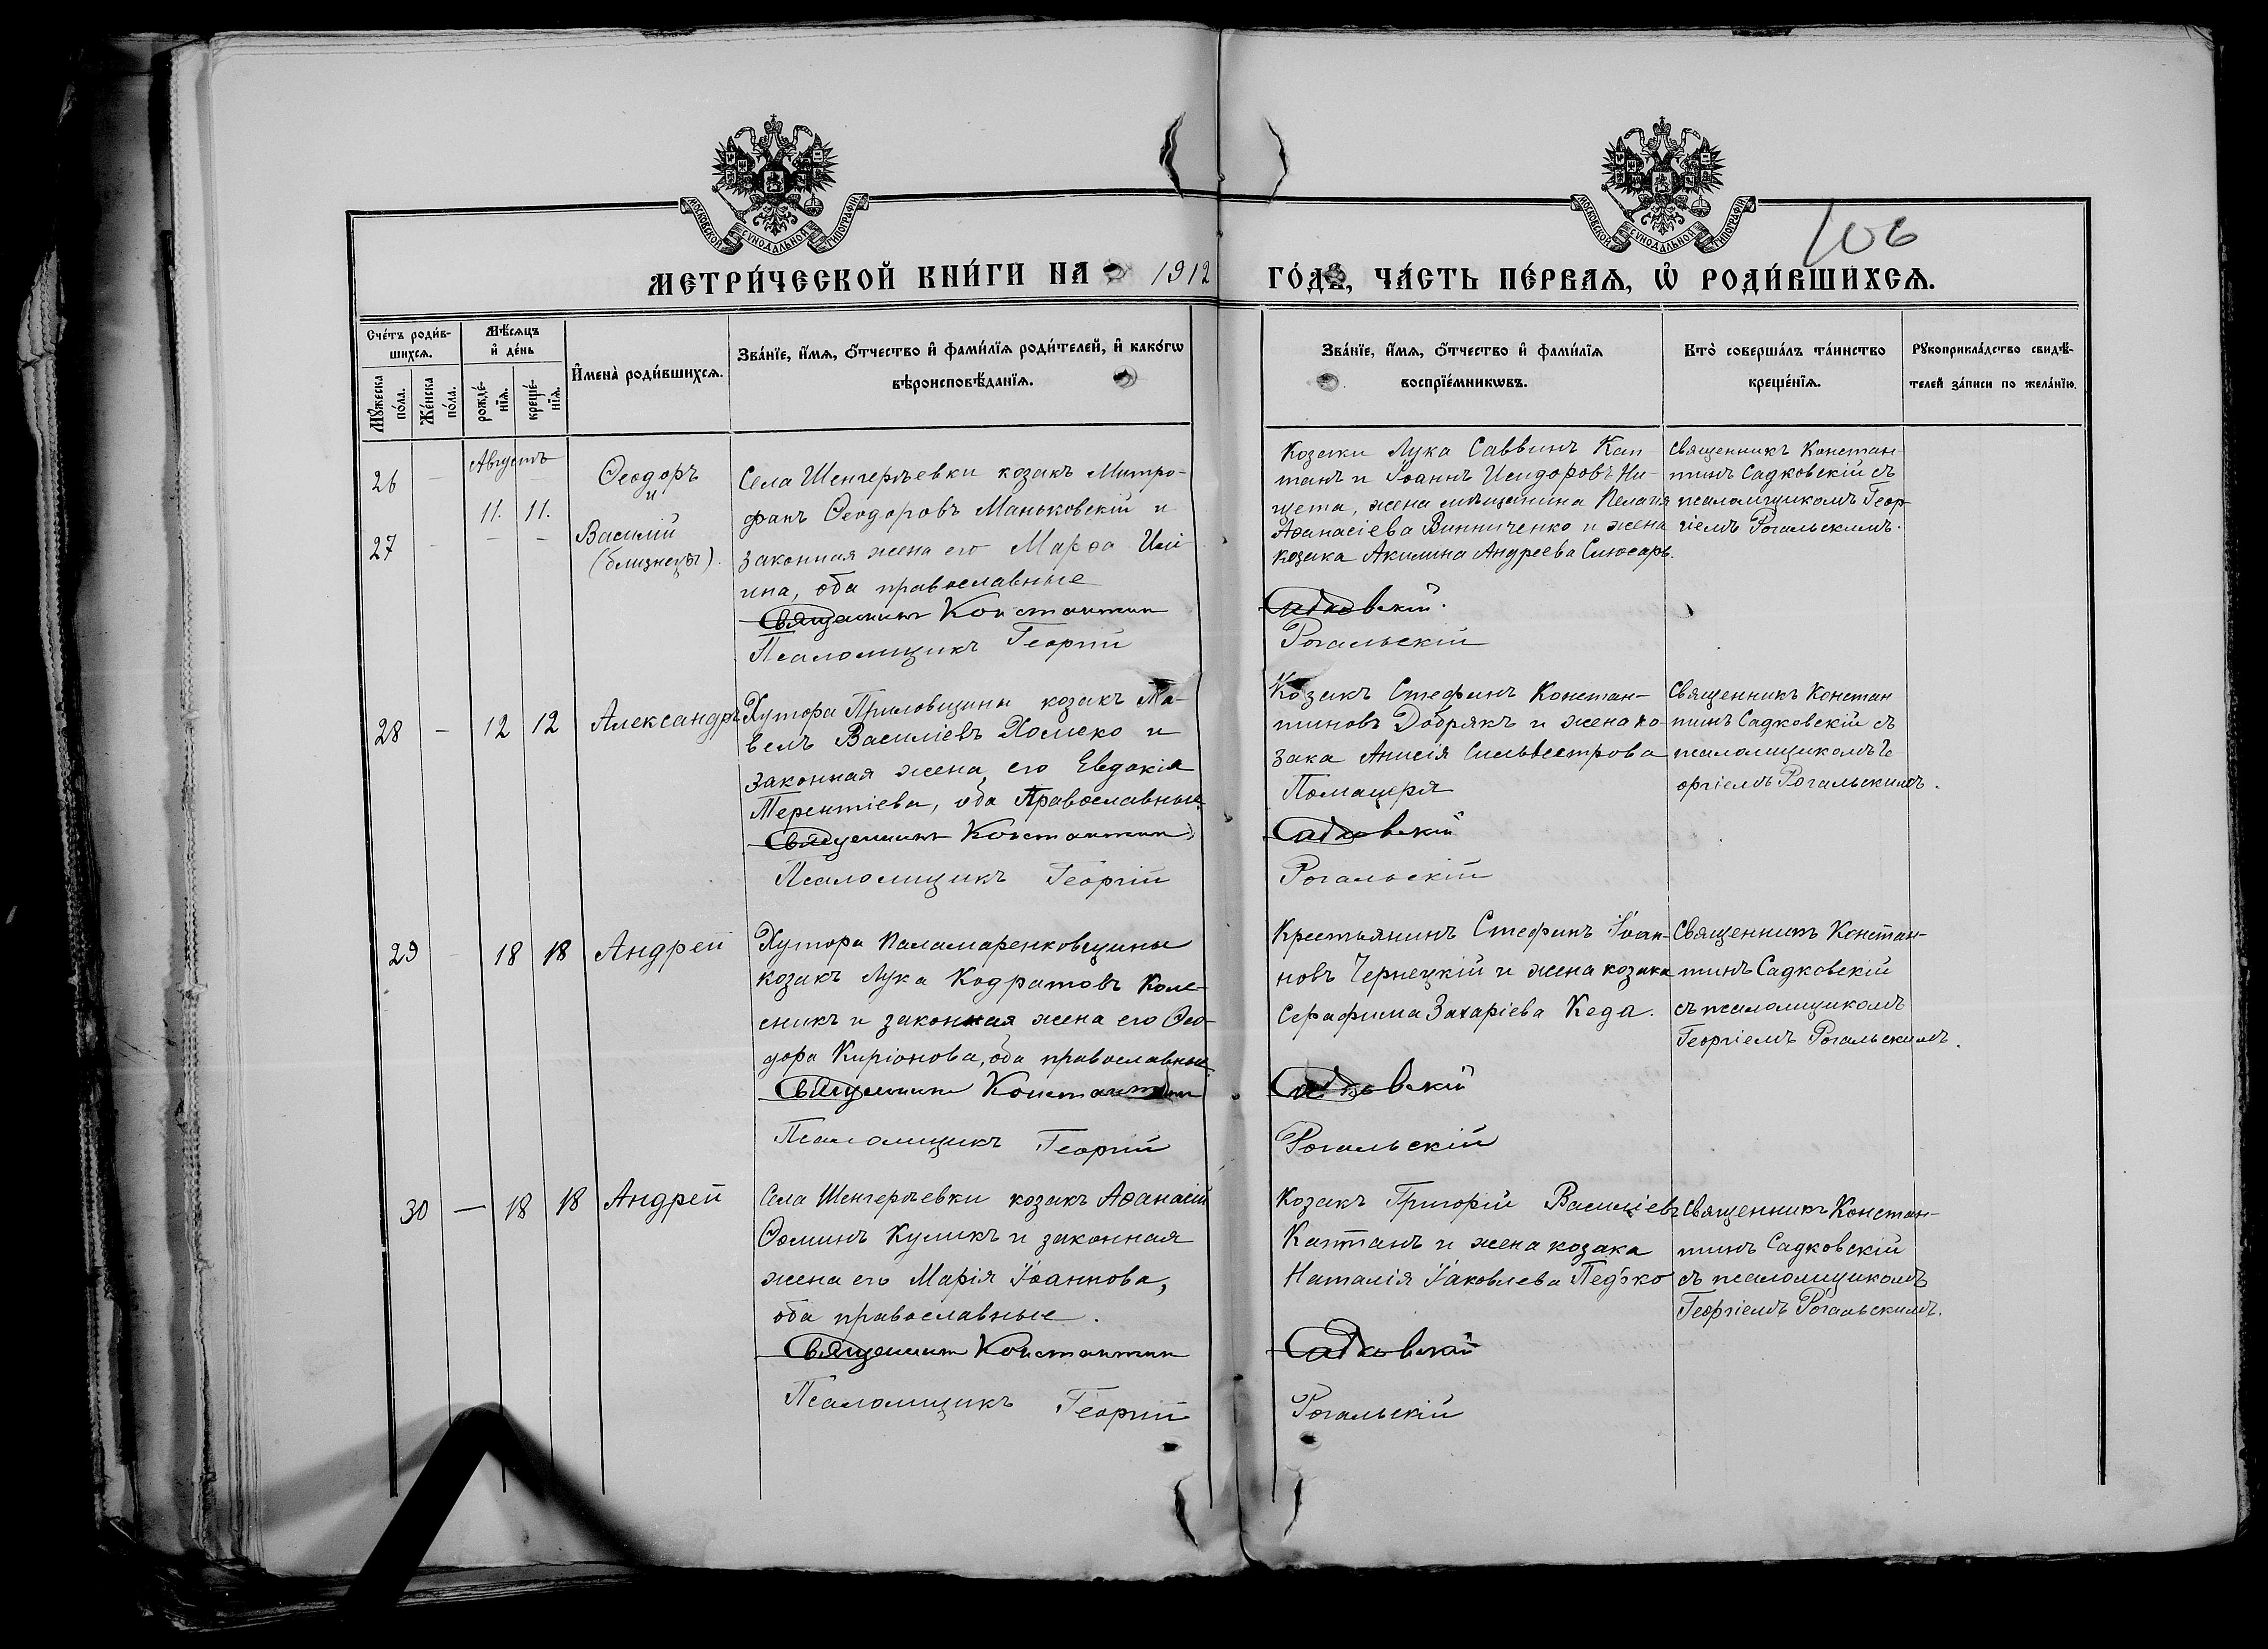 МОСКОВСКОЙ СУНОДАЛЬНОЙ ТИПОГРАФІИ
МОСКОВСКОЙ СУНОДАЛЬНОЙ ТИПОГРАФІИ
106
МЕТРИ́ЧЕСКОЙ КНИ́ГИ НА 1912 ГО́ДЪ, ЧА́СТЬ ПЕ́РВАѦ, Ѡ҆ РОДИ́ВШИХСѦ.
Сче́тъ роди́в-
шихсѧ.
Мꙋ́жеска по́ла.
Же́нска по́ла.
Мѣ́сѧцъ
и҆ де́нь
рожде́-
нїѧ.
креще́-
нїѧ.
И҆мена̀ роди́вшихсѧ.
Зва́нїе, и҆́мѧ, ѻ҆́тчество и҆ фами́лїѧ роди́телей, и҆ како́гѡ
вѣроисповѣ́данїѧ.
Зва́нїе, и҆́мѧ, ѻ҆́тчество и҆ фами́лїѧ
воспрїе́мникѡвъ.
Кто̀ соверша́лъ та́инство
креще́нїѧ.
Рꙋкоприкла́дство свидѣ́-
телей за́писи по жела́нїю.
Августъ
26 —
11. 11.
27 - - -
Ѳеодоръ
и
Василій
(близнецы).
Села Шенгерѣевки козакъ Митро-
фанъ Ѳеодоровъ Маньковскій и
законная жена его Марѳа Илі-
ина, оба православные
Священникъ Константин
Псаломщикъ Георгій
Козаки Лука Саввинъ Кап
танъ и Іоаннъ Исидоровъ Ни-
щета, жена мѣщанина Пелагія
Аѳанасіева Винниченко и жена
козака Акилина Андреева Слюсарь.
Садковскій.
Рогальскій
Священникъ Констан
тинъ Садковскій съ
псаломщикомъ Геор-
гіемъ Рогальскимъ.
28 — 12 12 Александръ
Хутора Приловщины козакъ Па-
велъ Василіевъ Хоменко и
законная жена его Евдокія
Терентіева, оба Православные
Священникъ Константин
Псаломщикъ Георгій
Козакъ Стефанъ Констан-
тиновъ Добрякъ и жена ко-
зака Анисія Сильвестрова
Садковскій
Рогальскій
Священникъ Констан
тинъ Садковскій съ
псаломщикомъ Ге
оргіемъ Рогальскимъ.
29 - 18 18 Андрей
Хутора Паламаренковщины
козакъ Лука Кодратовъ Коле-
сникъ и законная жена его Ѳео-
дора Киріонова, оба православные
Священникъ Константин
Псаломщикъ Георгій
Крестьянинъ Стефанъ Іоан-
новъ Чернецкій и жена козака
Серафима Захаріева Кеда.
Садковскій
Рогальскій
Священникъ Констан-
тинъ Садковскій
съ псаломщикомъ
Георгіемъ Рогальскимъ.
30 — 18 18 Андрей
Села Шенгерѣевки козакъ Аѳанасій
Ѳоминъ Куликъ и законная
жена его Марія Іоаннова,
оба православные.
Священникъ Константин
Псаломщикъ Георгій
Козакъ Григорій Василіевъ
Каптанъ и жена козака
Наталія Іаковлева Педько
Садковскій
Рогальскій
Священникъ Констан-
тинъ Садковскій
съ псаломщикомъ
Георгіемъ Рогальскимъ.